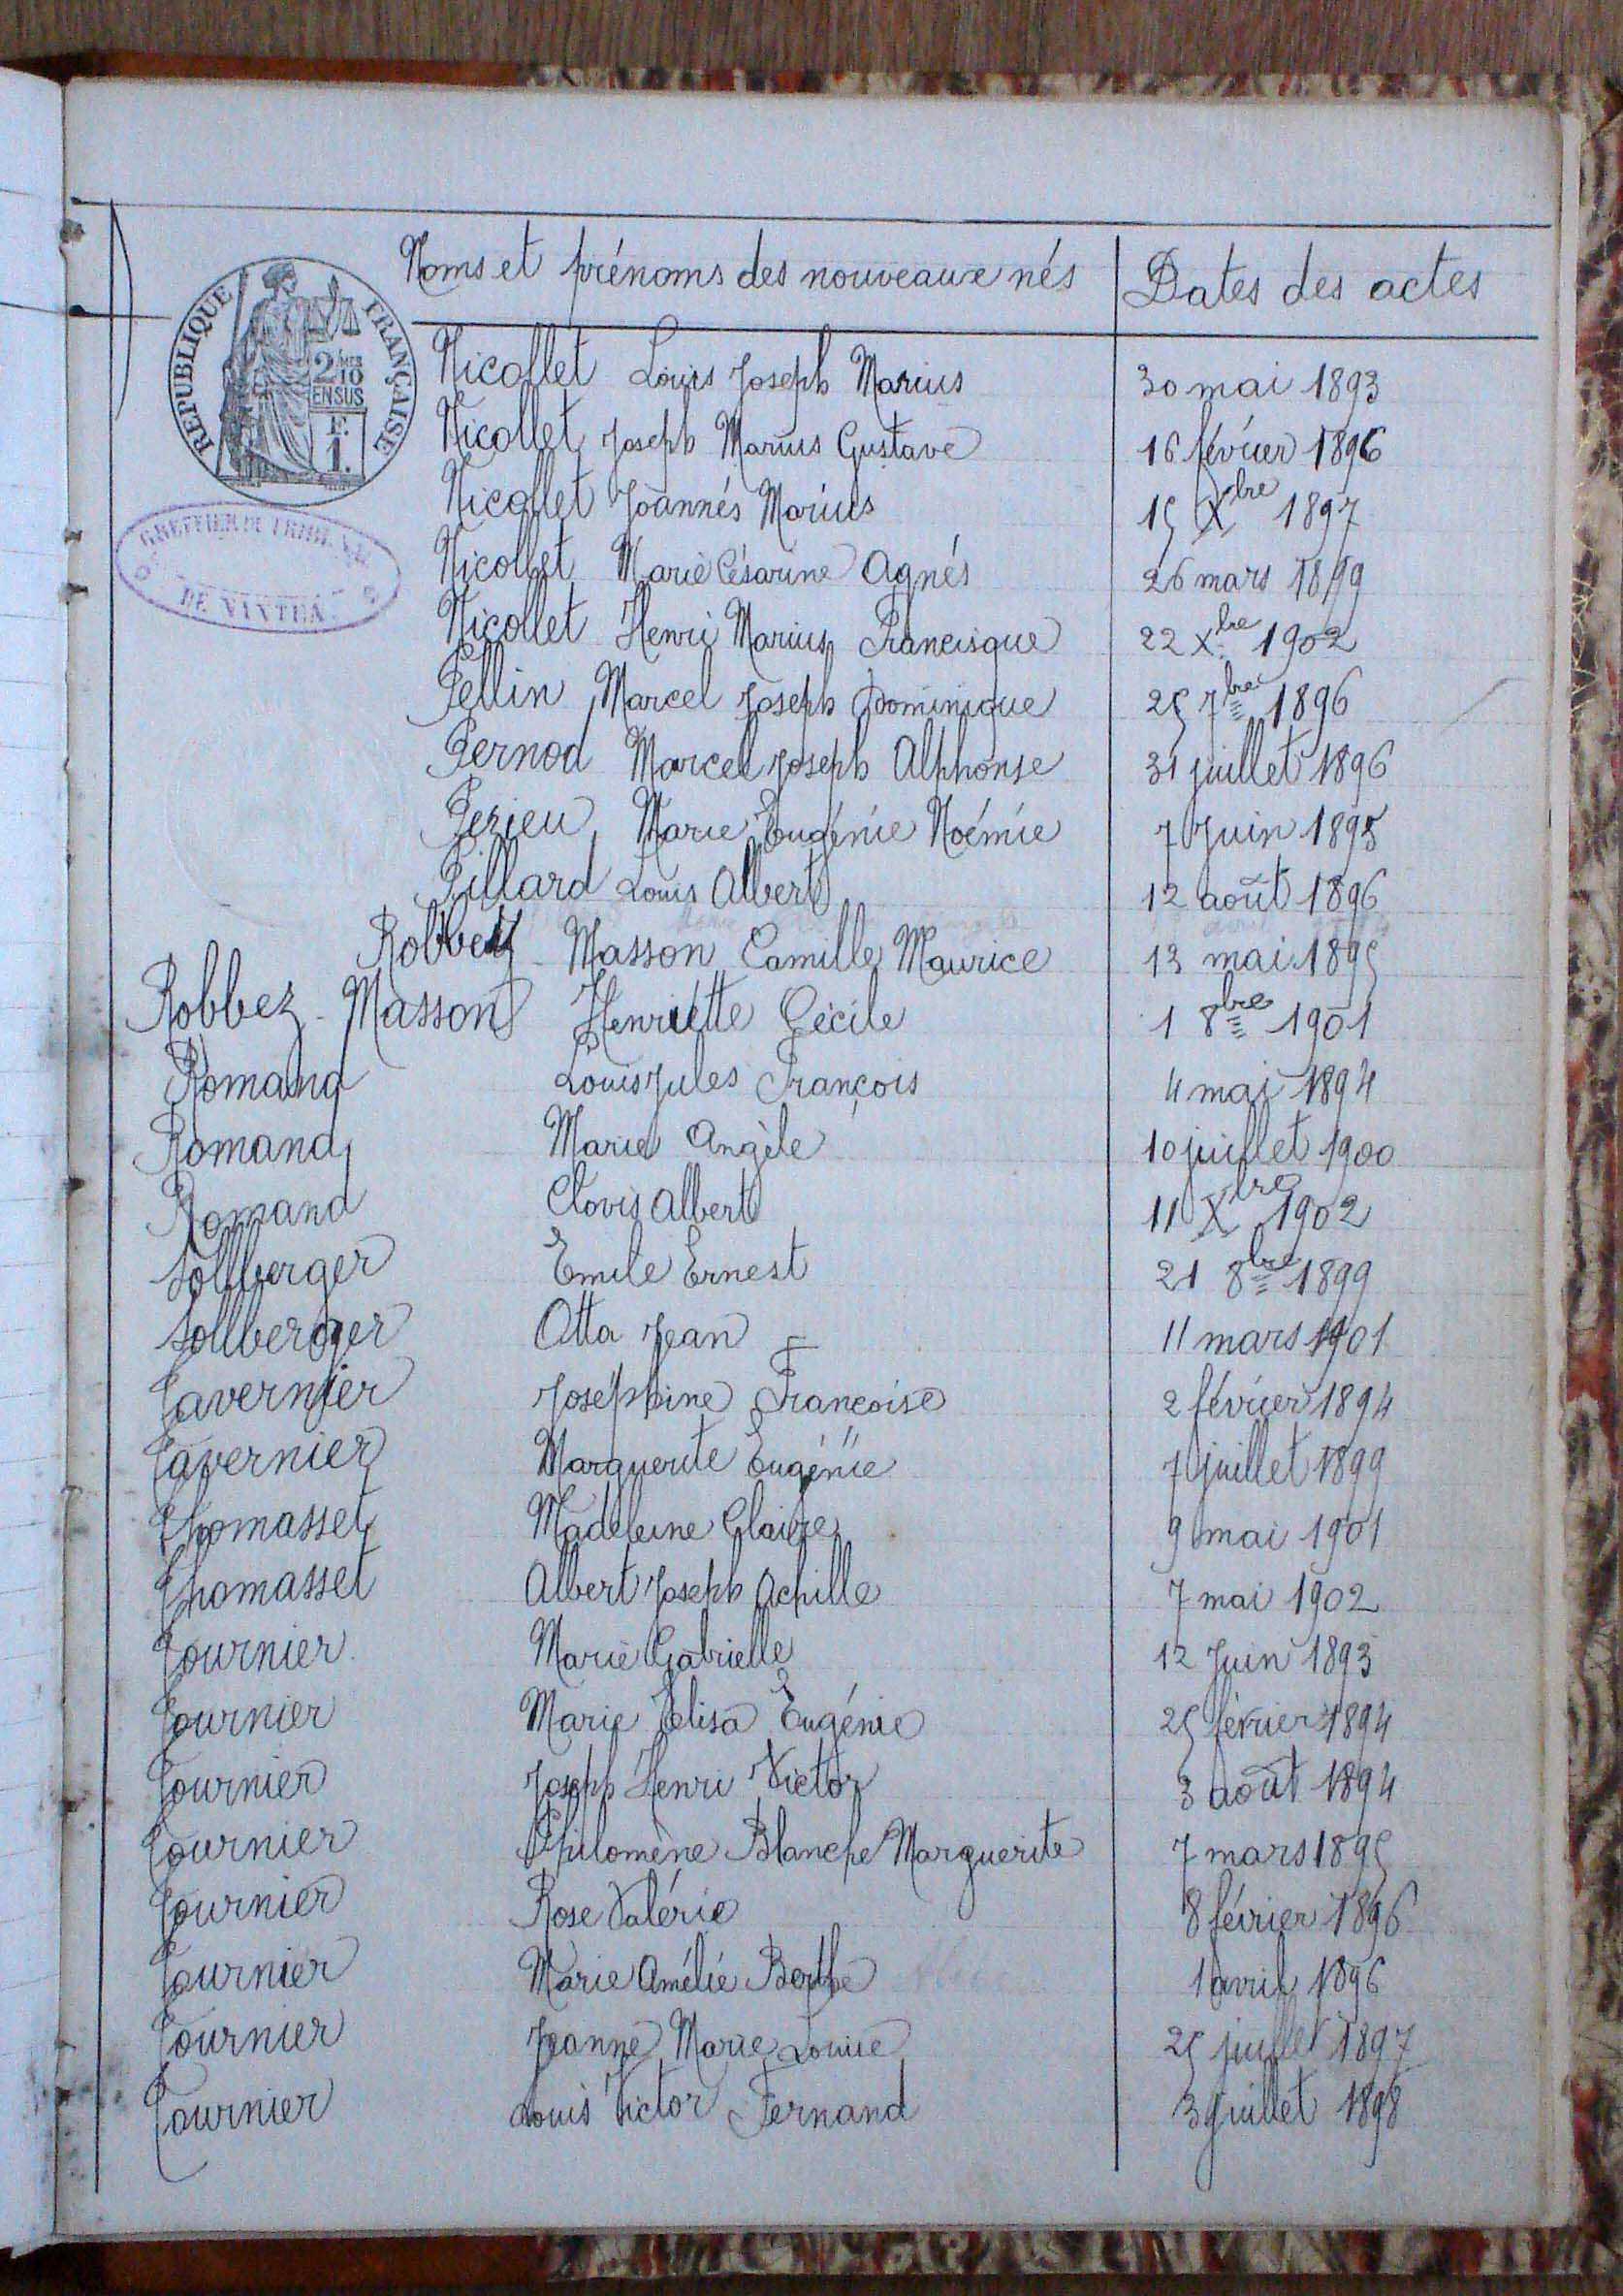 Noms et prénoms des nouveaux nés Dates des actes
RÉPUBLIQUE FRANÇAISE
2/10
EN SUS
F.
1.
GREFFIER DU TRIBUNAL
DE NANTUA
Nicollet Louis Joseph Marius 30 mai 1893
Nicollet Joseph Marius Gustave 16 février 1896
Nicollet Joannés Marius 15 Xbre 1897
Nicollet Marie Césarine Agnés 26 mars 1899
Nicollet Henri Marius Francisque 22 Xbre 1902
Pellin Marcel Joseph Dominique 25 7bre 1896
Pernod Marcel Joseph Alphonse 31 juillet 1896
Pezieu Marie Eugénie Noémie 7 Juin 1898
Pillard Louis Albert 12 août 1896
Robbez Masson Camille Maurice 13 mai 1895
Robbez - Masson Henriette Cécile 1 8bre 1901
Romand Louis Jules François 4 mai 1894
Romand Marie Angèle 10 juillet 1900
Romand Clovis Albert 11 Xbre 1902
Sollberger Emile Ernest 21 8bre 1899
Sollberger Otta Jean 11 mars 1901
Tavernier Joséphine Françoise 2 février 1894
Tavernier Marguerite Eugénie 7 juillet 1899
Thomasset Madeleine Claire 9 mai 1901
Thomasset Albert Joseph Achille 7 mai 1902
Tournier Marie Gabrielle 12 Juin 1893
Tournier Marie Elisa Eugénie 25 février 1894
Tournier Joseph Henri Victor 3 août 1894
Tournier Philomène Blanche Marguerite 7 mars 1895
Tournier Rose Valérie 8 février 1896
Tournier Marie Amélie Berthe 1 avril 1896
Tournier Jeanne Marie Louise 25 juillet 1897
Tournier Louis Victor Fernand 3 juillet 1898